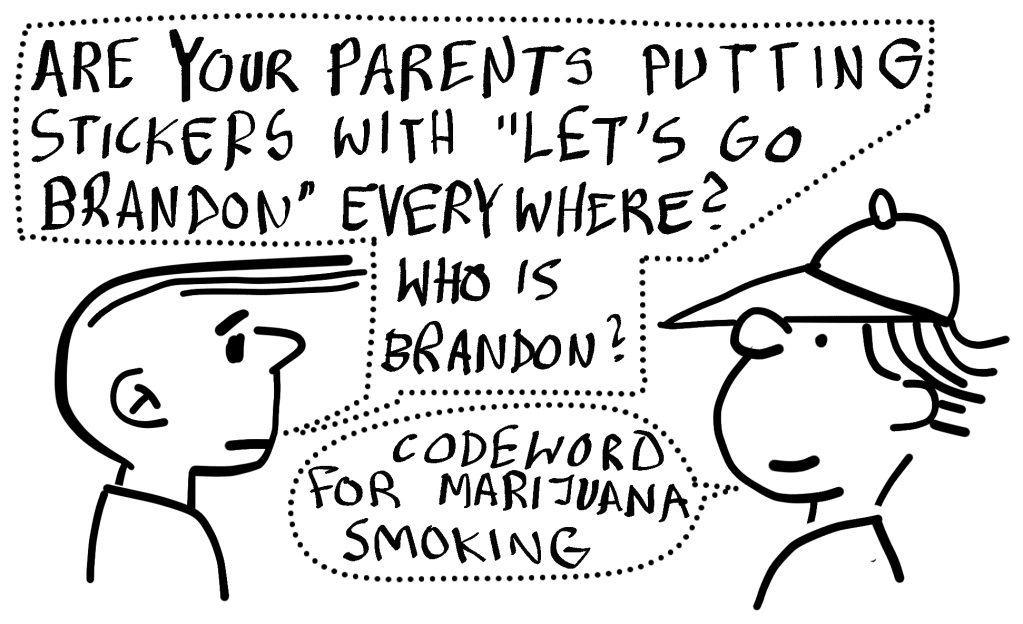 ARE YOUR PARENTS PUTTING
STICKERS WITH "LET'S GO
BRANDON" EVERYWHERE?
WHO IS
BRANDON?
CODEWORD
FOR MARIJUANA
SMOKING